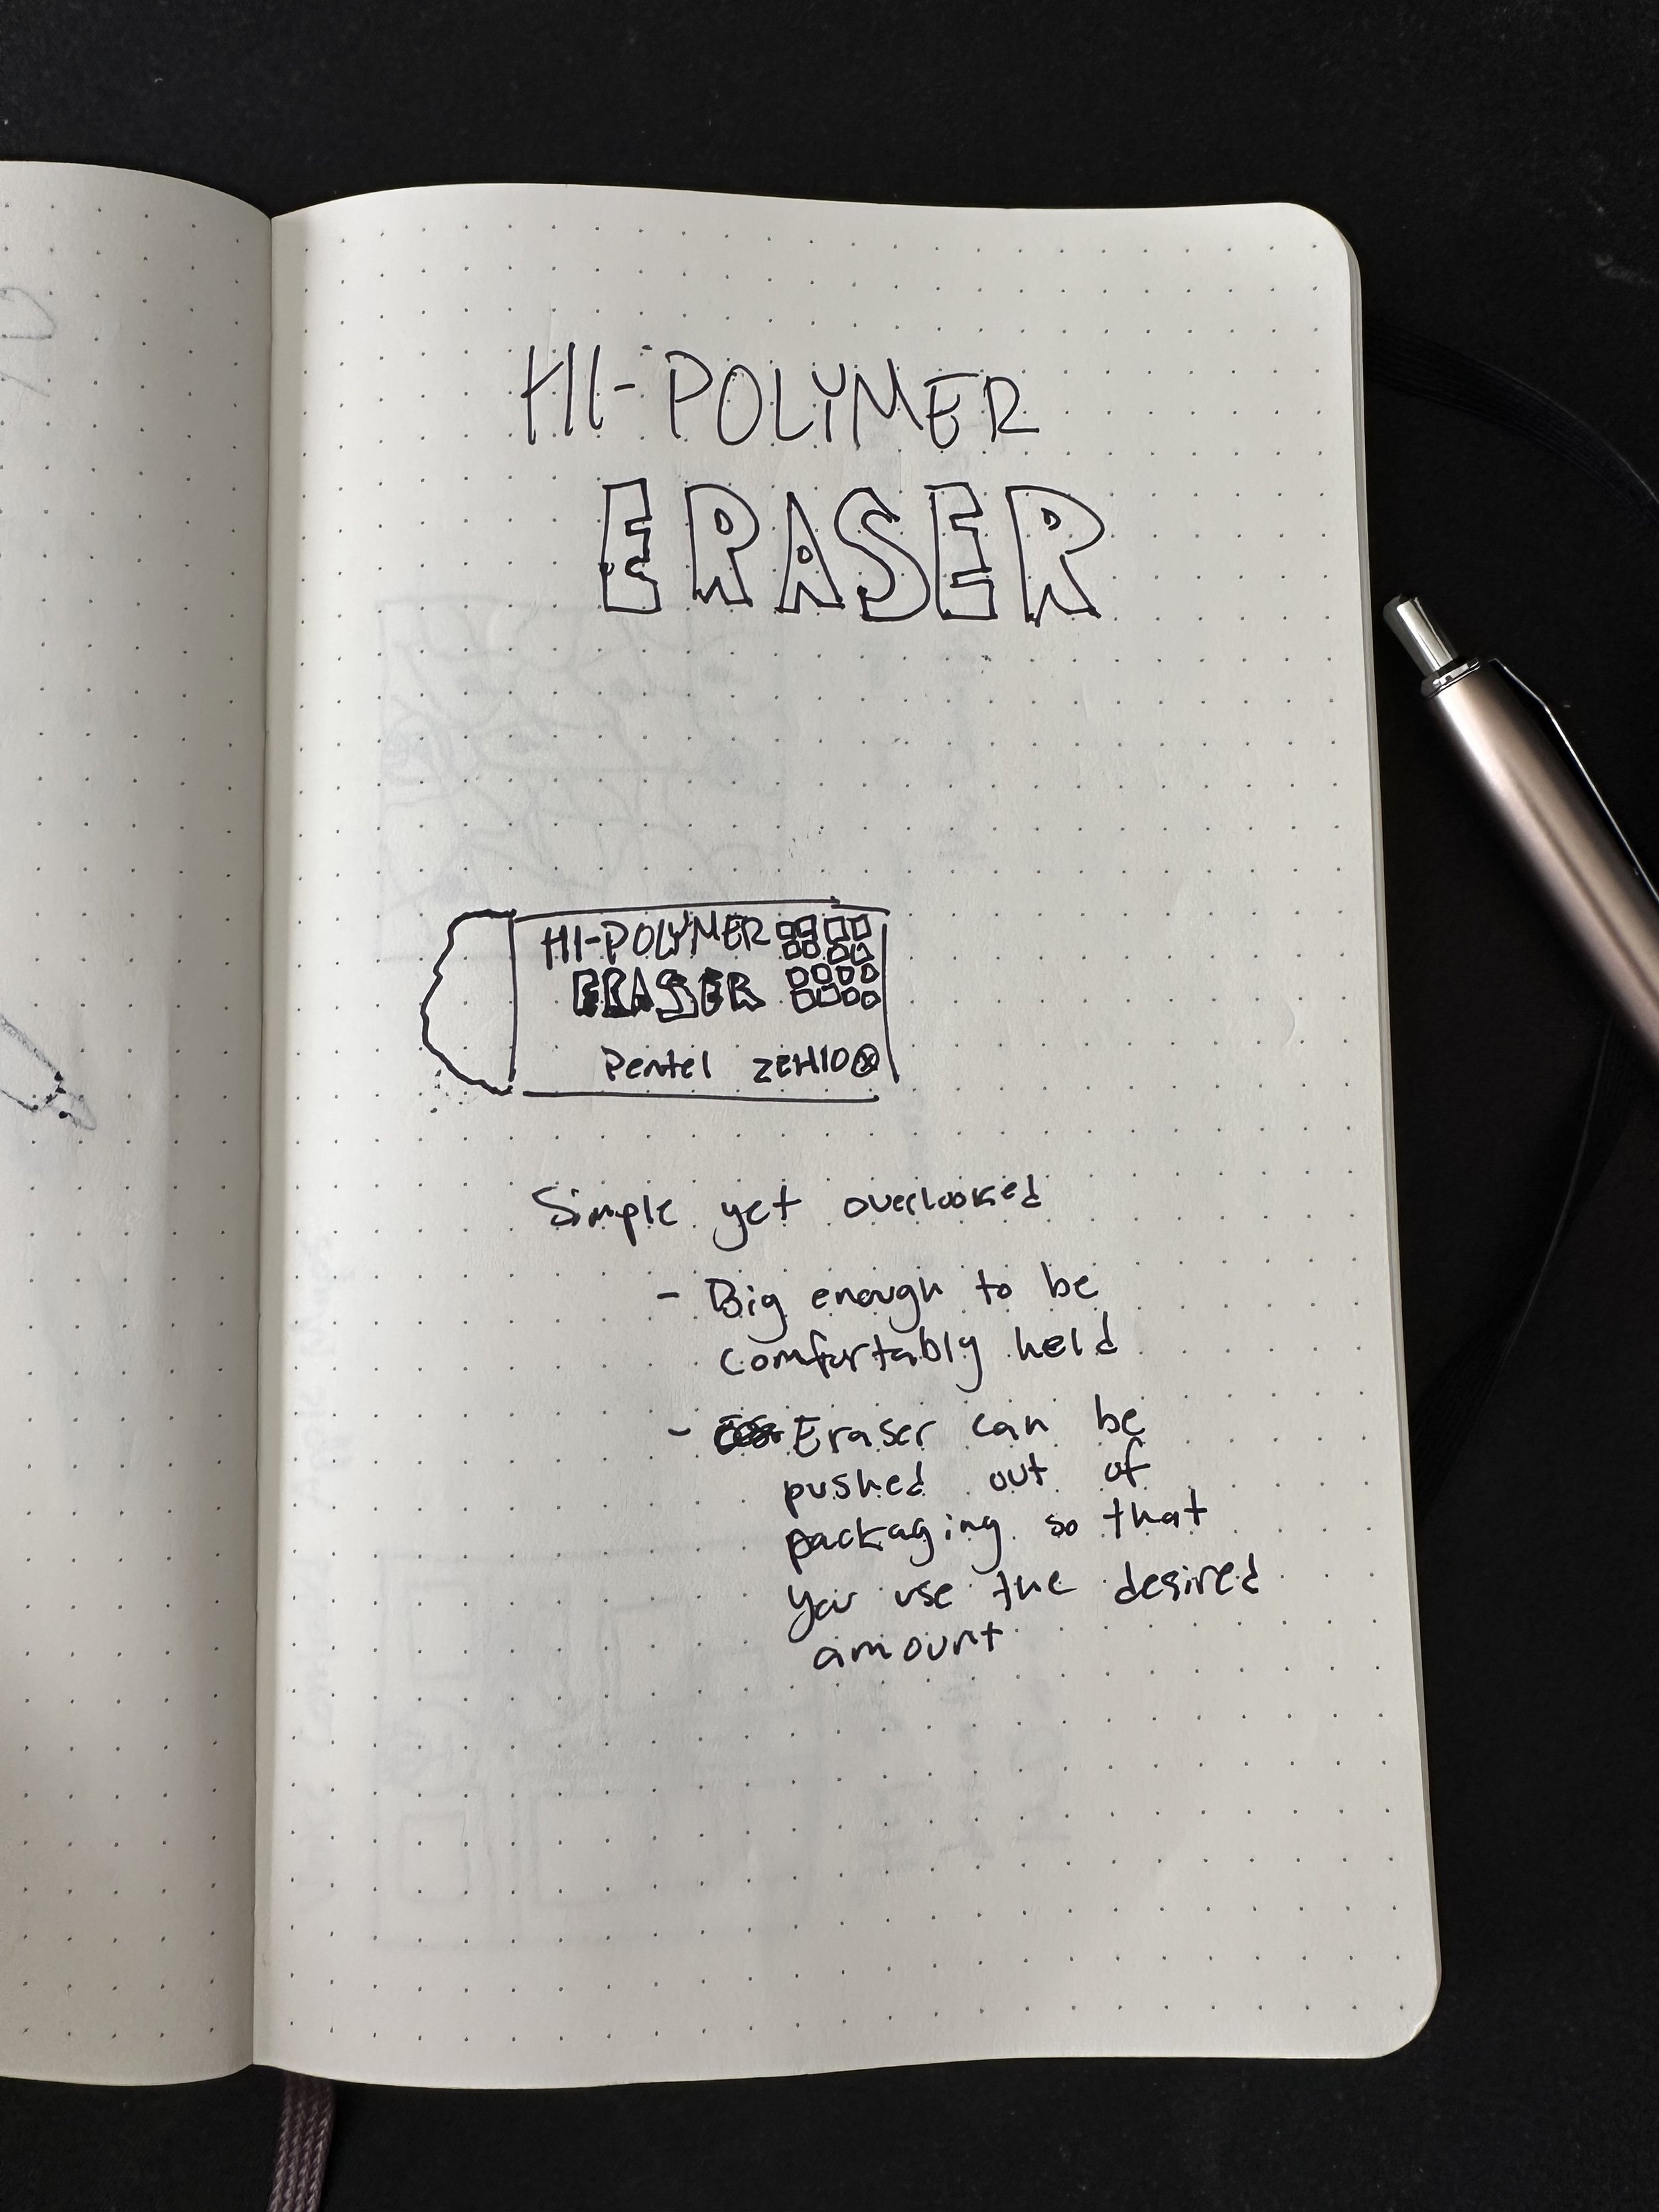 HI-POLYMER
ERASER
HI-POLYMER
ERASER
Pentel ZEH10
Simple yet overlooked
- Big enough to be
comfortably held
- Eraser can be
pushed out of
packaging so that
you use the desired
amount